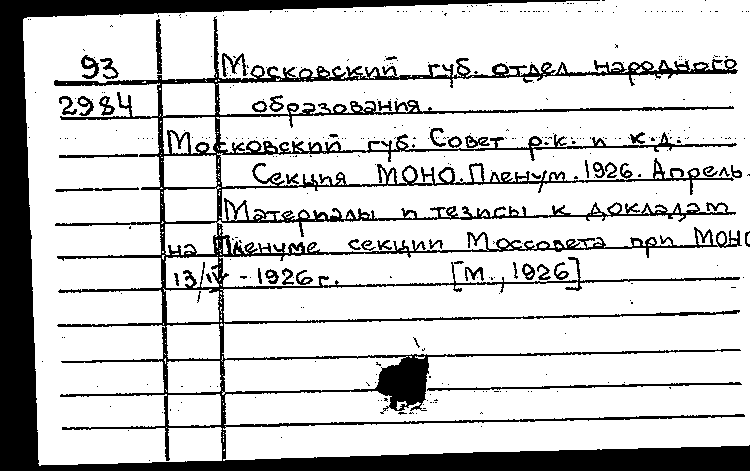 93 Московский губ. отдел народного
2984 образования.
Московский губ. Совет р.к. и к.д.
Секция МОНО. Пленум. 1926. Апрель.
Материалы и тезисы к докладам
на Пленуме секции Моссовета при МОНО
13/IV - 1926 г. [М., 1926]